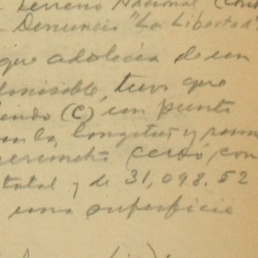 Terreno Nacional (Cont
- Denuncio "La Libertad"
que adolecia de un
admisible, tuvo que
endo (C) un punto
on la longitud y rum
perimetro cerró, con
total y de 31,098.52
una superficie